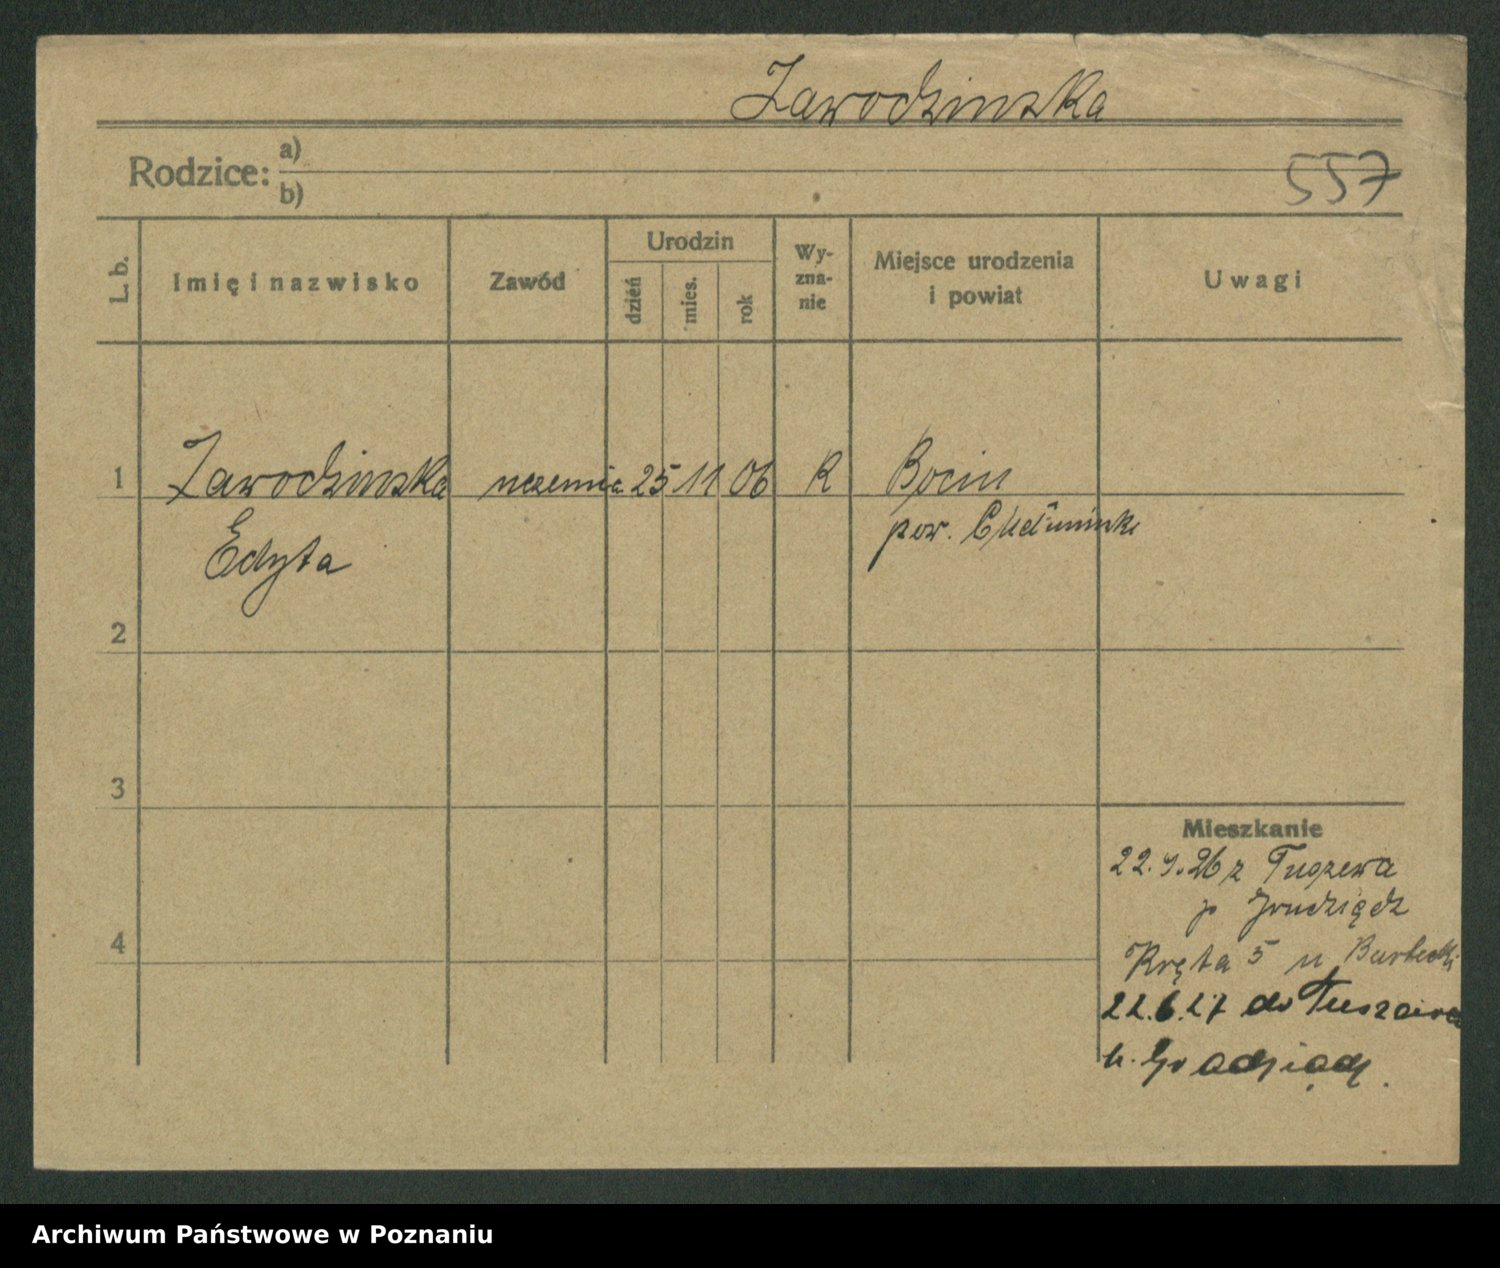 Zawodzinska
Rodzice: a)
b)
557
L. b.
Imię i nazwisko
Zawód
Urodzin
dzień
mies.
rok
Wy-
zna-
nie
Miejsce urodzenia
i powiat
Uwagi
1 Zawodzinska uczenica 25 11 06 R Bocin
Edyta pow. Chełminski
2
3
Mieszkanie
22.9.26 z Tuszewa
p Grudziądz
4
Kręta 5 u
22.6.27 do Tuszewa
Archiwum Państwowe w Poznaniu